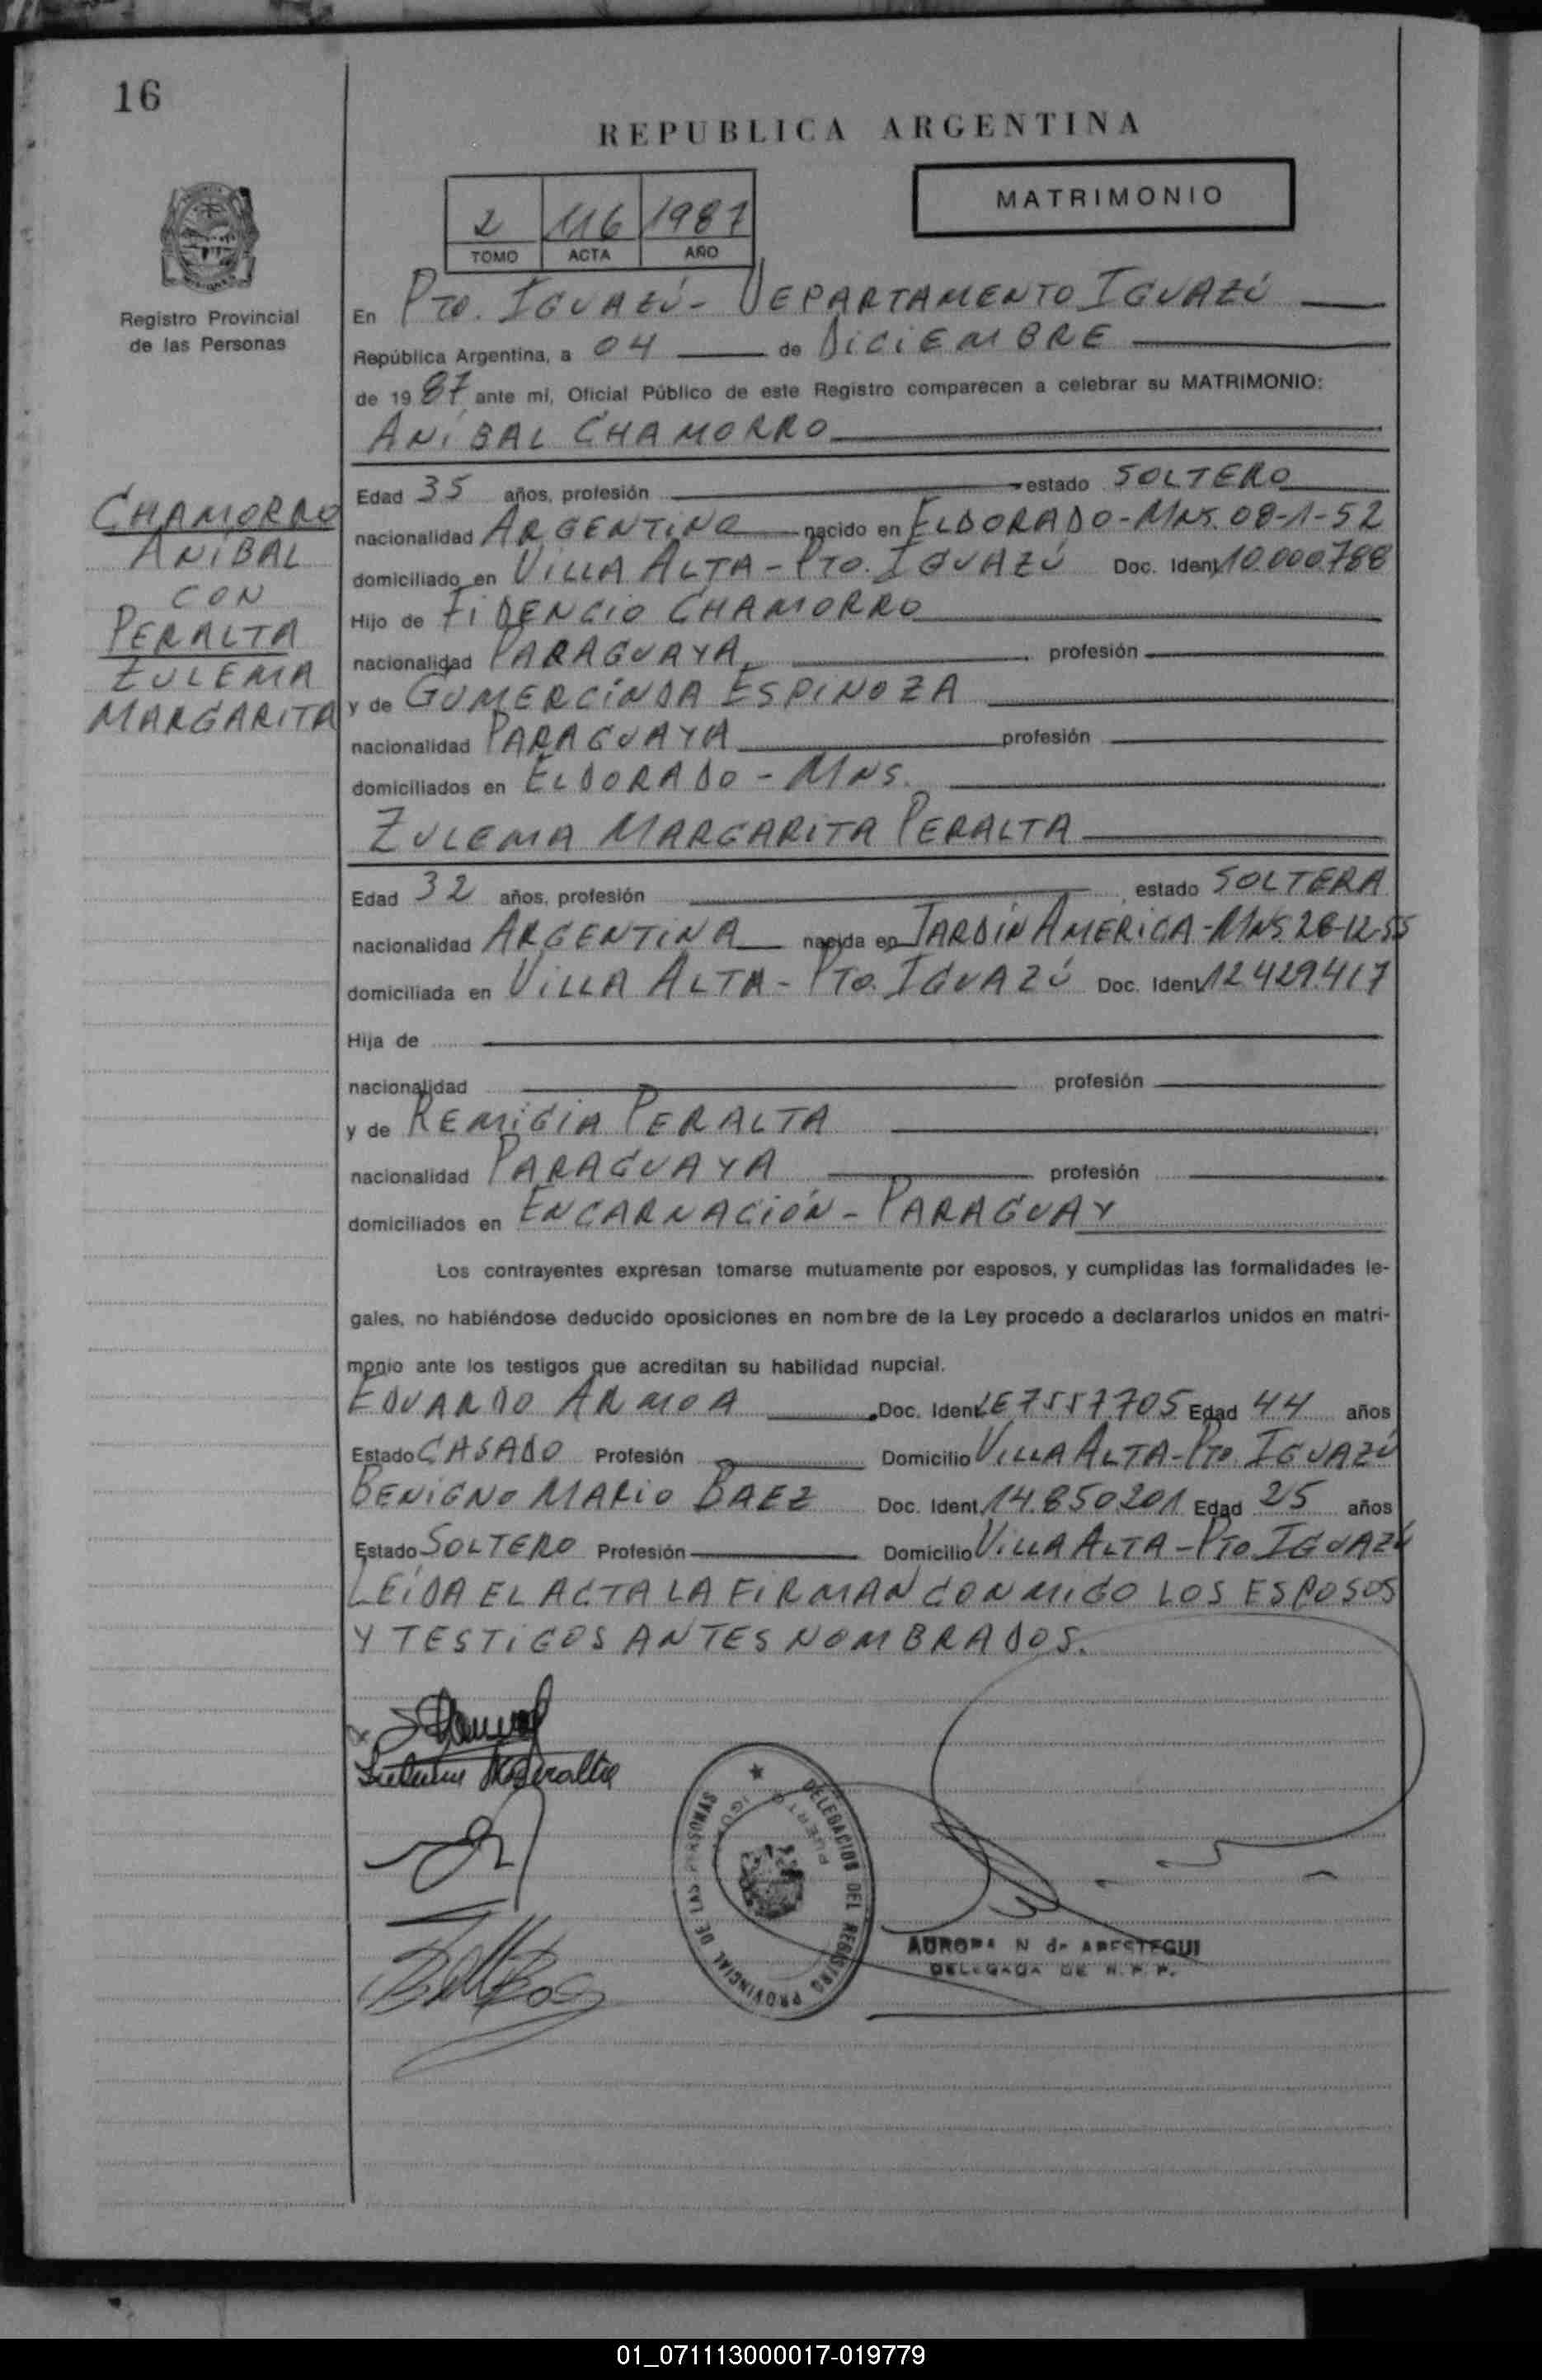 16
REPUBLICA ARGENTINA
MATRIMONIO
2 116 1987
TOMO ACTA AÑO
Registro Provincial
de las Personas
En PTO. IGUAZÚ - DEPARTAMENTO IGUAZÚ
República Argentina, a 04 de DICIEMBRE
de 19 87 ante mi, Oficial Público de este Registro comparecen a celebrar su MATRIMONIO:
ANÍBAL CHAMORRO
CHAMORRO
ANÍBAL
CON
PERALTA
ZULEMA
MARGARITA
Edad 35 años, profesión estado SOLTERO
nacionalidad ARGENTINO nacido en ELDORADO-MNS. 08-1-52
domiciliado en VILLA ALTA - PTO. IGUAZÚ Doc. Ident. 10.000.788
Hijo de FIDENCIO CHAMORRO
nacionalidad PARAGUAYA profesión
y de GUMERCINDA ESPINOZA
nacionalidad PARAGUAYA profesión
domiciliados en ELDORADO - MNS.
ZULEMA MARGARITA PERALTA
Edad 32 años, profesión estado SOLTERA
nacionalidad ARGENTINA nacida en JARDÍN AMERICA-MNS. 28-12-55
domiciliada en VILLA ALTA - PTO. IGUAZÚ Doc. Ident. 12.429.417
Hija de
nacionalidad profesión
y de REMIGIA PERALTA
nacionalidad PARAGUAYA profesión
domiciliados en ENCARNACIÓN - PARAGUAY
Los contrayentes expresan tomarse mutuamente por esposos, y cumplidas las formalidades le-
gales, no habiéndose deducido oposiciones en nombre de la Ley procedo a declararlos unidos en matri-
monio ante los testigos que acreditan su habilidad nupcial.
EDUARDO ARMOA Doc. Ident. LE 7557705 Edad 44 años
Estado CASADO Profesión Domicilio VILLA ALTA - PTO. IGUAZÚ
BENIGNO MARIO BAEZ Doc. Ident. 14.850.201 Edad 25 años
Estado SOLTERO Profesión Domicilio VILLA ALTA - PTO. IGUAZÚ
LEÍDA EL ACTA LA FIRMAN CONMIGO LOS ESPOSOS
Y TESTIGOS ANTES NOMBRADOS.
DELEGACION DEL REGISTRO PROVINCIAL DE LAS PERSONAS
PUERTO IGUAZU
AURORA N de ARESTEGUI
DELEGADA DE R. P. P.
01_071113000017-019779